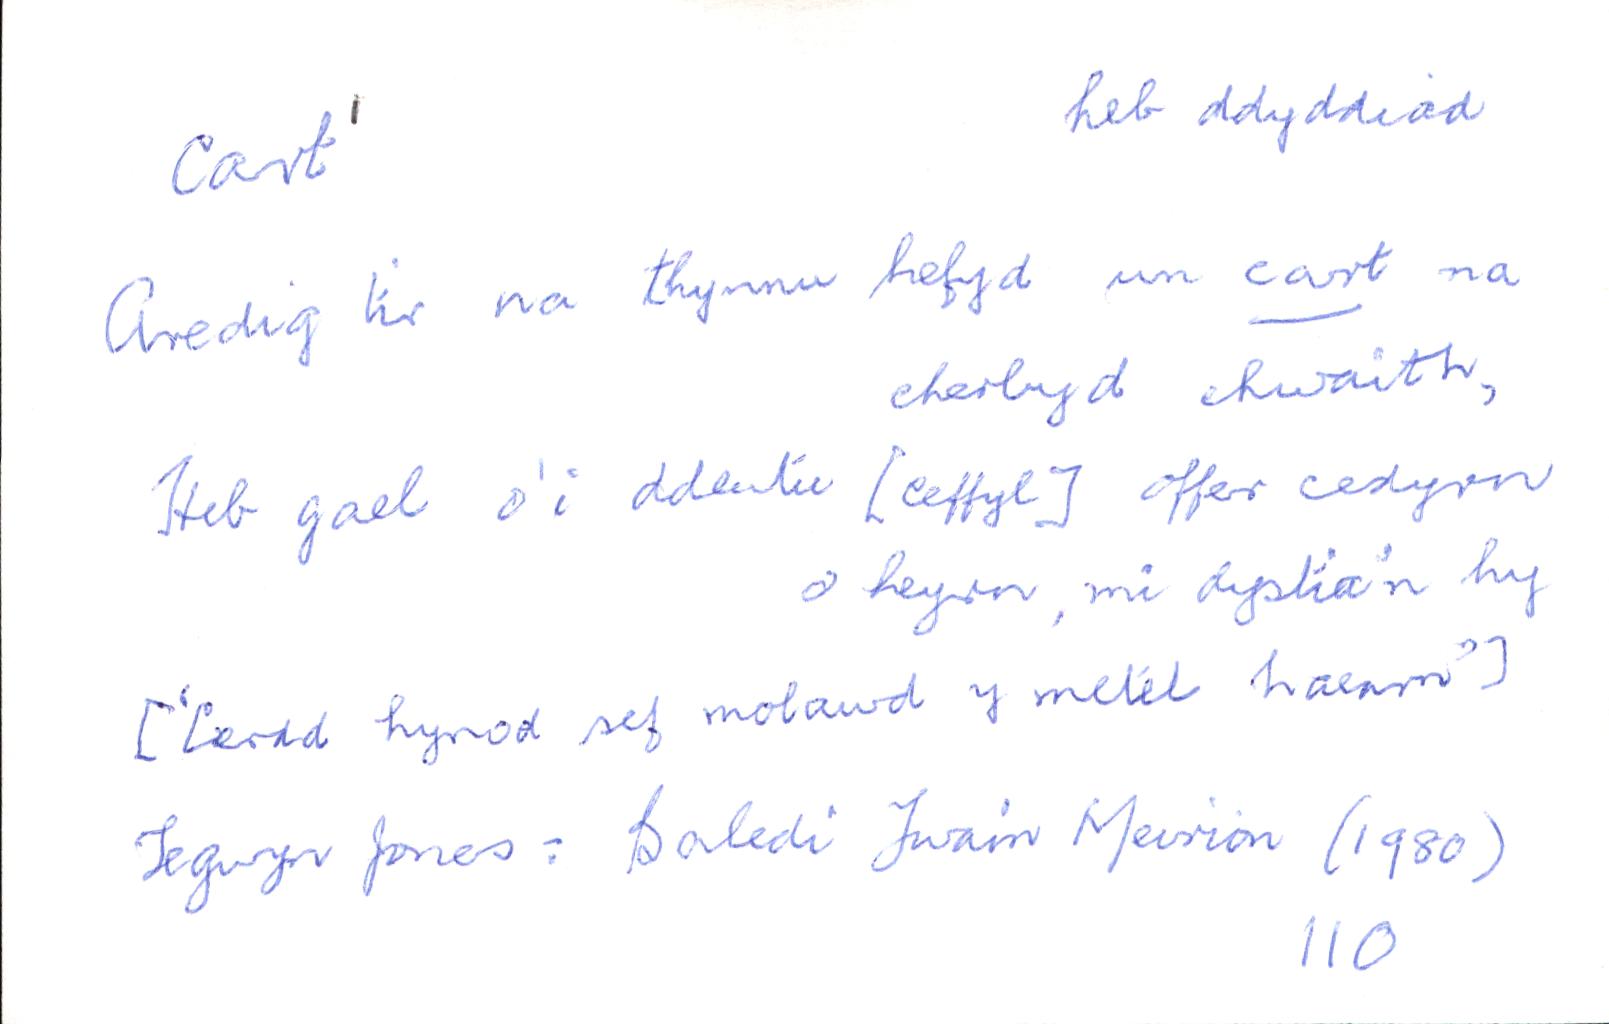 cart¹
heb ddyddiad
Aredig tir na thynnu hefyd un cart na
cherbyd chwaith,
Heb gael o'i ddeutu [ceffyl] offer cedyrn
o heyrn, mi dystia'n hy
["Cerdd hynod sef molawd y metel haearn"]
Tegwyn Jones: Baledi Ywain Meirion (1980)
110